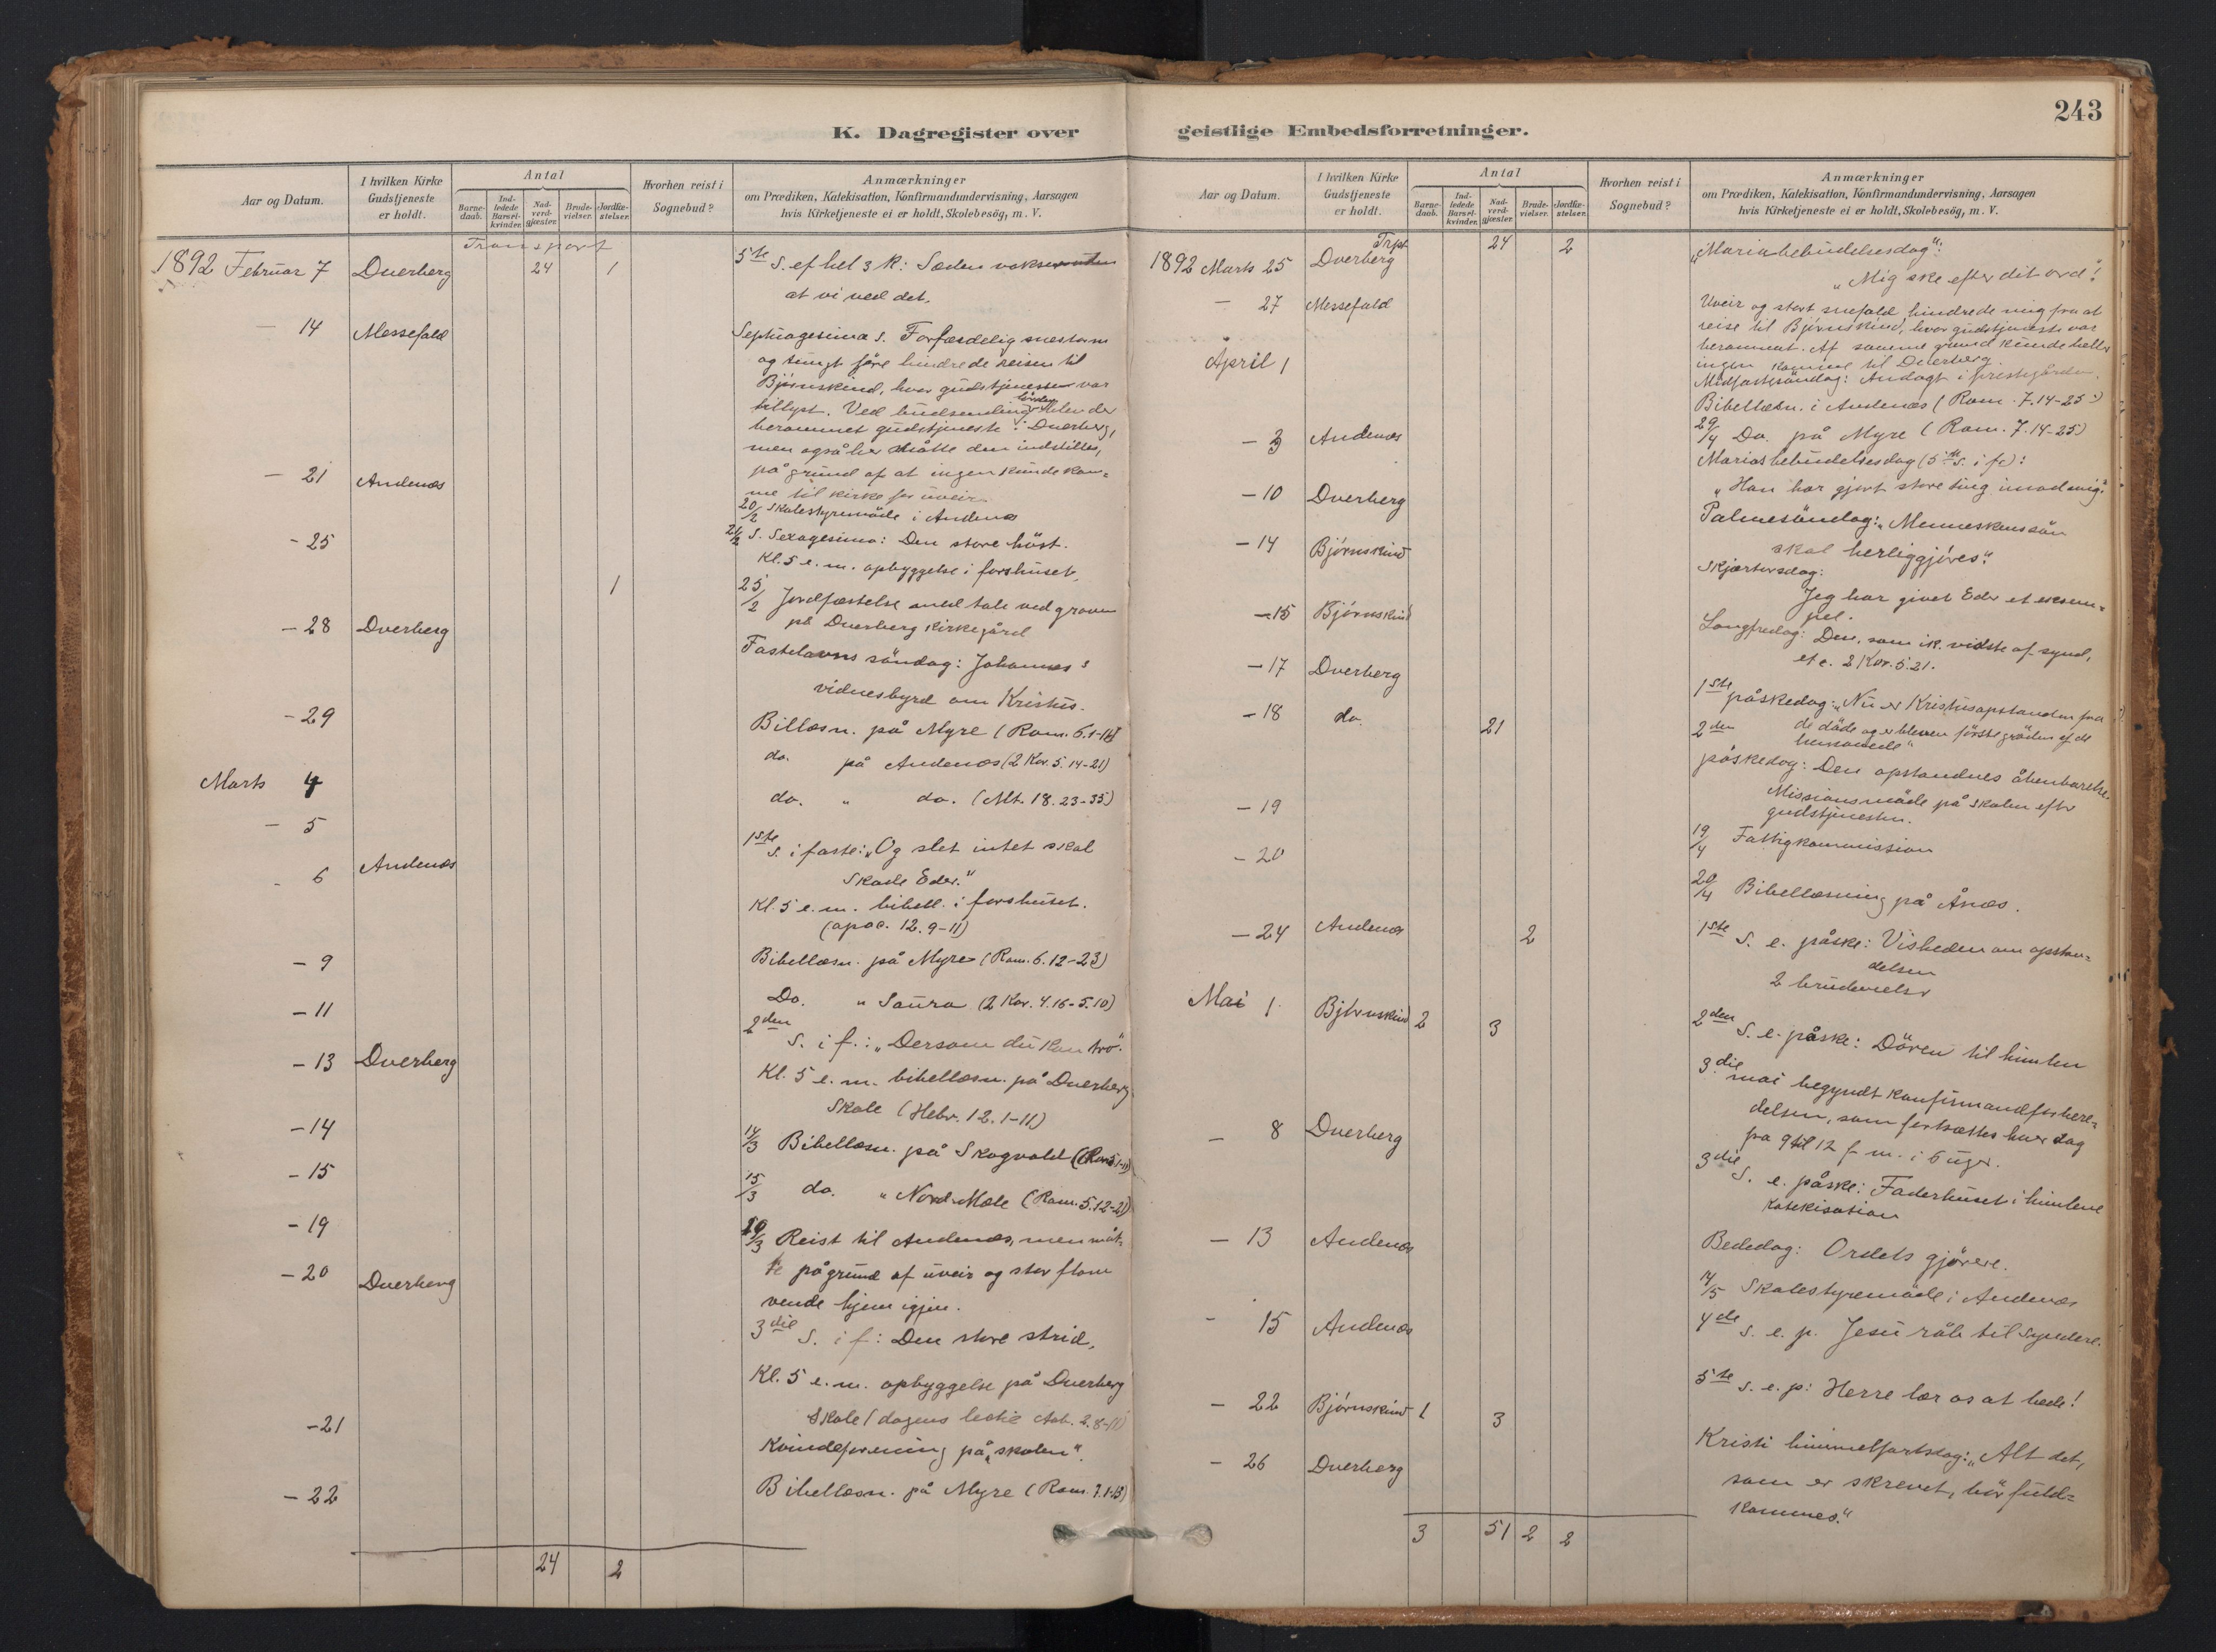 K. Dagregister over
Aar og Datum.
I hvilken Kirke Gudstjeneste er holdt.
Antal
Barne-daab.
Ind-ledede Barsel-kvinder.
Nad-verd-gjæster.
Brude-vielser.
Jordfæ-stelser.
Hvorhen reist i Sognebud?
Anmærkninger
om Prædiken, Katekisation, Konfirmandundervisning, Aarsagen
hvis Kirketjeneste ei er holdt, Skolebesög, m. V.
Transport
1892 Februar 7 Dverberg 24 1 5te S. ef hel 3 k: Sæden vokser uden
at vi ved det.
- 14 Messefald Septuagesima S. Forfærdelig snestorm
og tungt före hindrede reisen til
Björnskind, hvor gudstjeneste var
tillyst. Ved budsending lördag blev der
berammet gudstjeneste i Dverberg,
men også her måtte den indstilles,
på grund af at ingen kunde kom=
me til kirke for uveir.
20/2 Skolestyremöde i Andenæs
- 21 Andenæs 21/2 S. Sexagesima: Den store höst.
Kl. 5 e. m. opbyggelse i forshuset.
- 25 1 25/2 Jordfæstelse med tale ved graven
på Dverberg kirkegård
- 28 Dverberg Fastelavns söndag: Johannes's
vidnesbyrd om Kristus.
- 29 Billæsn. på Myre (Rom. 6.1-14)
Marts 4 do. på Andenæs (2 Kor. 5. 14-21)
- 5 do. " do. (Mt. 18. 23-35)
- 6 Andenæs 1ste S. i faste: "Og slet intet skal
skade Eder."
Kl. 5 e. m. bibell. i forshuset.
(apoc. 12. 9-11)
- 9 Bibellæsn. på Myre (Rom. 6. 12-23)
- 11 Do. " Saura (2 Kor. 4.16-5.10)
- 13 Dverberg 2den S. i f.: "Dersom du kan tro".
Kl. 5 e. m. bibellæsn. på Dverberg
Skole (Hebr. 12. 1-11)
- 14 14/3 Bibellæsn. på Skogvold (Rom 5.1-11)
- 15 15/3 do. " Nord-Mæle (Rom. 5.12-21)
- 19 19/3 Reist til Andenæs, men måt=
te på grund af uveir og stor flom
vende hjem igjen.
- 20 Dverberg 3die S. i f: Den store strid.
Kl. 5 e. m. opbyggelse på Dverberg
Skole (dagens lectie Aab. 2. 8-11)
- 21 Kvindeforening på "skolen".
- 22 Bibellæsn. på Myre (Rom. 7.1-13)
24 2
243
geistlige Embedsforretninger.
Aar og Datum.
I hvilken Kirke Gudstjeneste er holdt.
Antal
Barne-daab.
Ind-ledede Barsel-kvinder.
Nad-verd-gjæster.
Brude-vielser.
Jordfæ-stelser.
Hvorhen reist i Sognebud?
Anmærkninger
om Prædiken, Katekisation, Konfirmandundervisning, Aarsagen
hvis Kirketjeneste ei er holdt, Skolebesög, m. V.
Trpt. 24 2
1892 Marts 25 Dverberg "Mariæ bebudelsesdag":
"Mig ske efter dit ord!
- 27 Messefald Uveir og stort snefald hindrede mig fra at
reise til Björnskind, hvor gudstjeneste var
berammet. Af samme grund kunde heller
ingen komme til Dverberg.
Midfastesöndag: Andagt i prestegården.
April 1 Bibellæsn. i Andenæs (Rom. 7.14-25)
29/4 Do. på Myre (Rom. 7.14-25)
- 3 Andenæs Marias bebudelsesdag (5te S. i f.):
"Han har gjort store ting imod mig."
- 10 Dverberg Palmesöndag: "Menneskens sön
skal herliggjöres."
- 14 Björnskind Skjærtorsdag:
Jeg har givet Eder et eksem=
pel.
- 15 Björnskind Langfredag: Den, som ik. vidste af synd,
etc. 2 Kor. 5. 21.
- 17 Dverberg 1ste påskedag: "Nu er Kristus opstanden fra
de döde og er bleven förstegröden af de
hensovede"
- 18 do. 21 2den påskedag: Den opstandnes åbenbarelse.
Missionsmöde på skolen efter
gudstjenesten.
- 19 19/4 Fattigkommission
- 20 20/4 Bibellæsning på Ånæs.
- 24 Andenæs 2 1ste S. e. påske: Visheden om opstan=
delsen
2 brudevielser
Mai 1 Björnskind 2 3 2den S. e. påske: Dören til himlen
3die mai begyndt konfirmandforbere=
delsen, som fortsættes hver dag
fra 9 til 12 f. m. i 6 uger.
- 8 Dverberg 3die S. e. påske: Faderhuset i himlene
Katekisation
- 13 Andenæs Bededag: Ordets gjörere.
14/5 Skolestyremöde i Andenæs
- 15 Andenæs 4de S. e. p. Jesu råb til syndere.
- 22 Björnskind 1 3 5te S. e. p: Herre lær os at bede!
- 26 Dverberg Kristi himmelfartsdag: "Alt det,
som er skrevet, bör fuld=
kommes."
3 51 2 2